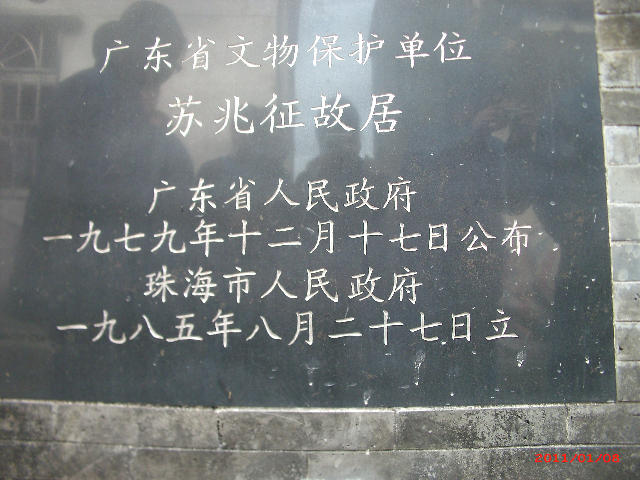 广东省文物保护单位
苏兆征故居
广东省人民政府
一九七九年十二月十七日公布
珠海市人民政府
一九八五年八月二十七日立
2011/01/08